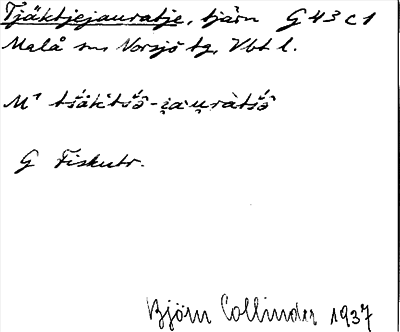 Tjäktjejauratje, tjärn G 43 c 1
Malå sn, Norsjö tg, Vbt l.
M¹ tśäktśə̑-i̯au̯ràtśə̑
G Fiskutr.
Björn Collinder 1937